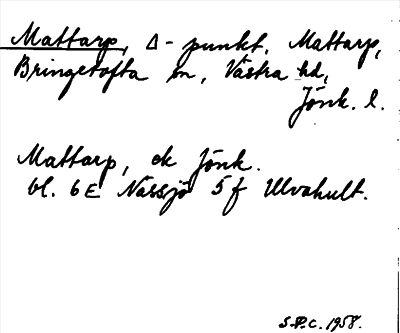 Mattarp, Δ-punkt, Mattarp,
Bringetofta sn, Västra hd,
Jönk. l.
Mattarp, ek Jönk.
bl. 6E Nässjö 5f Ulvahult.
S.P.C. 1958.